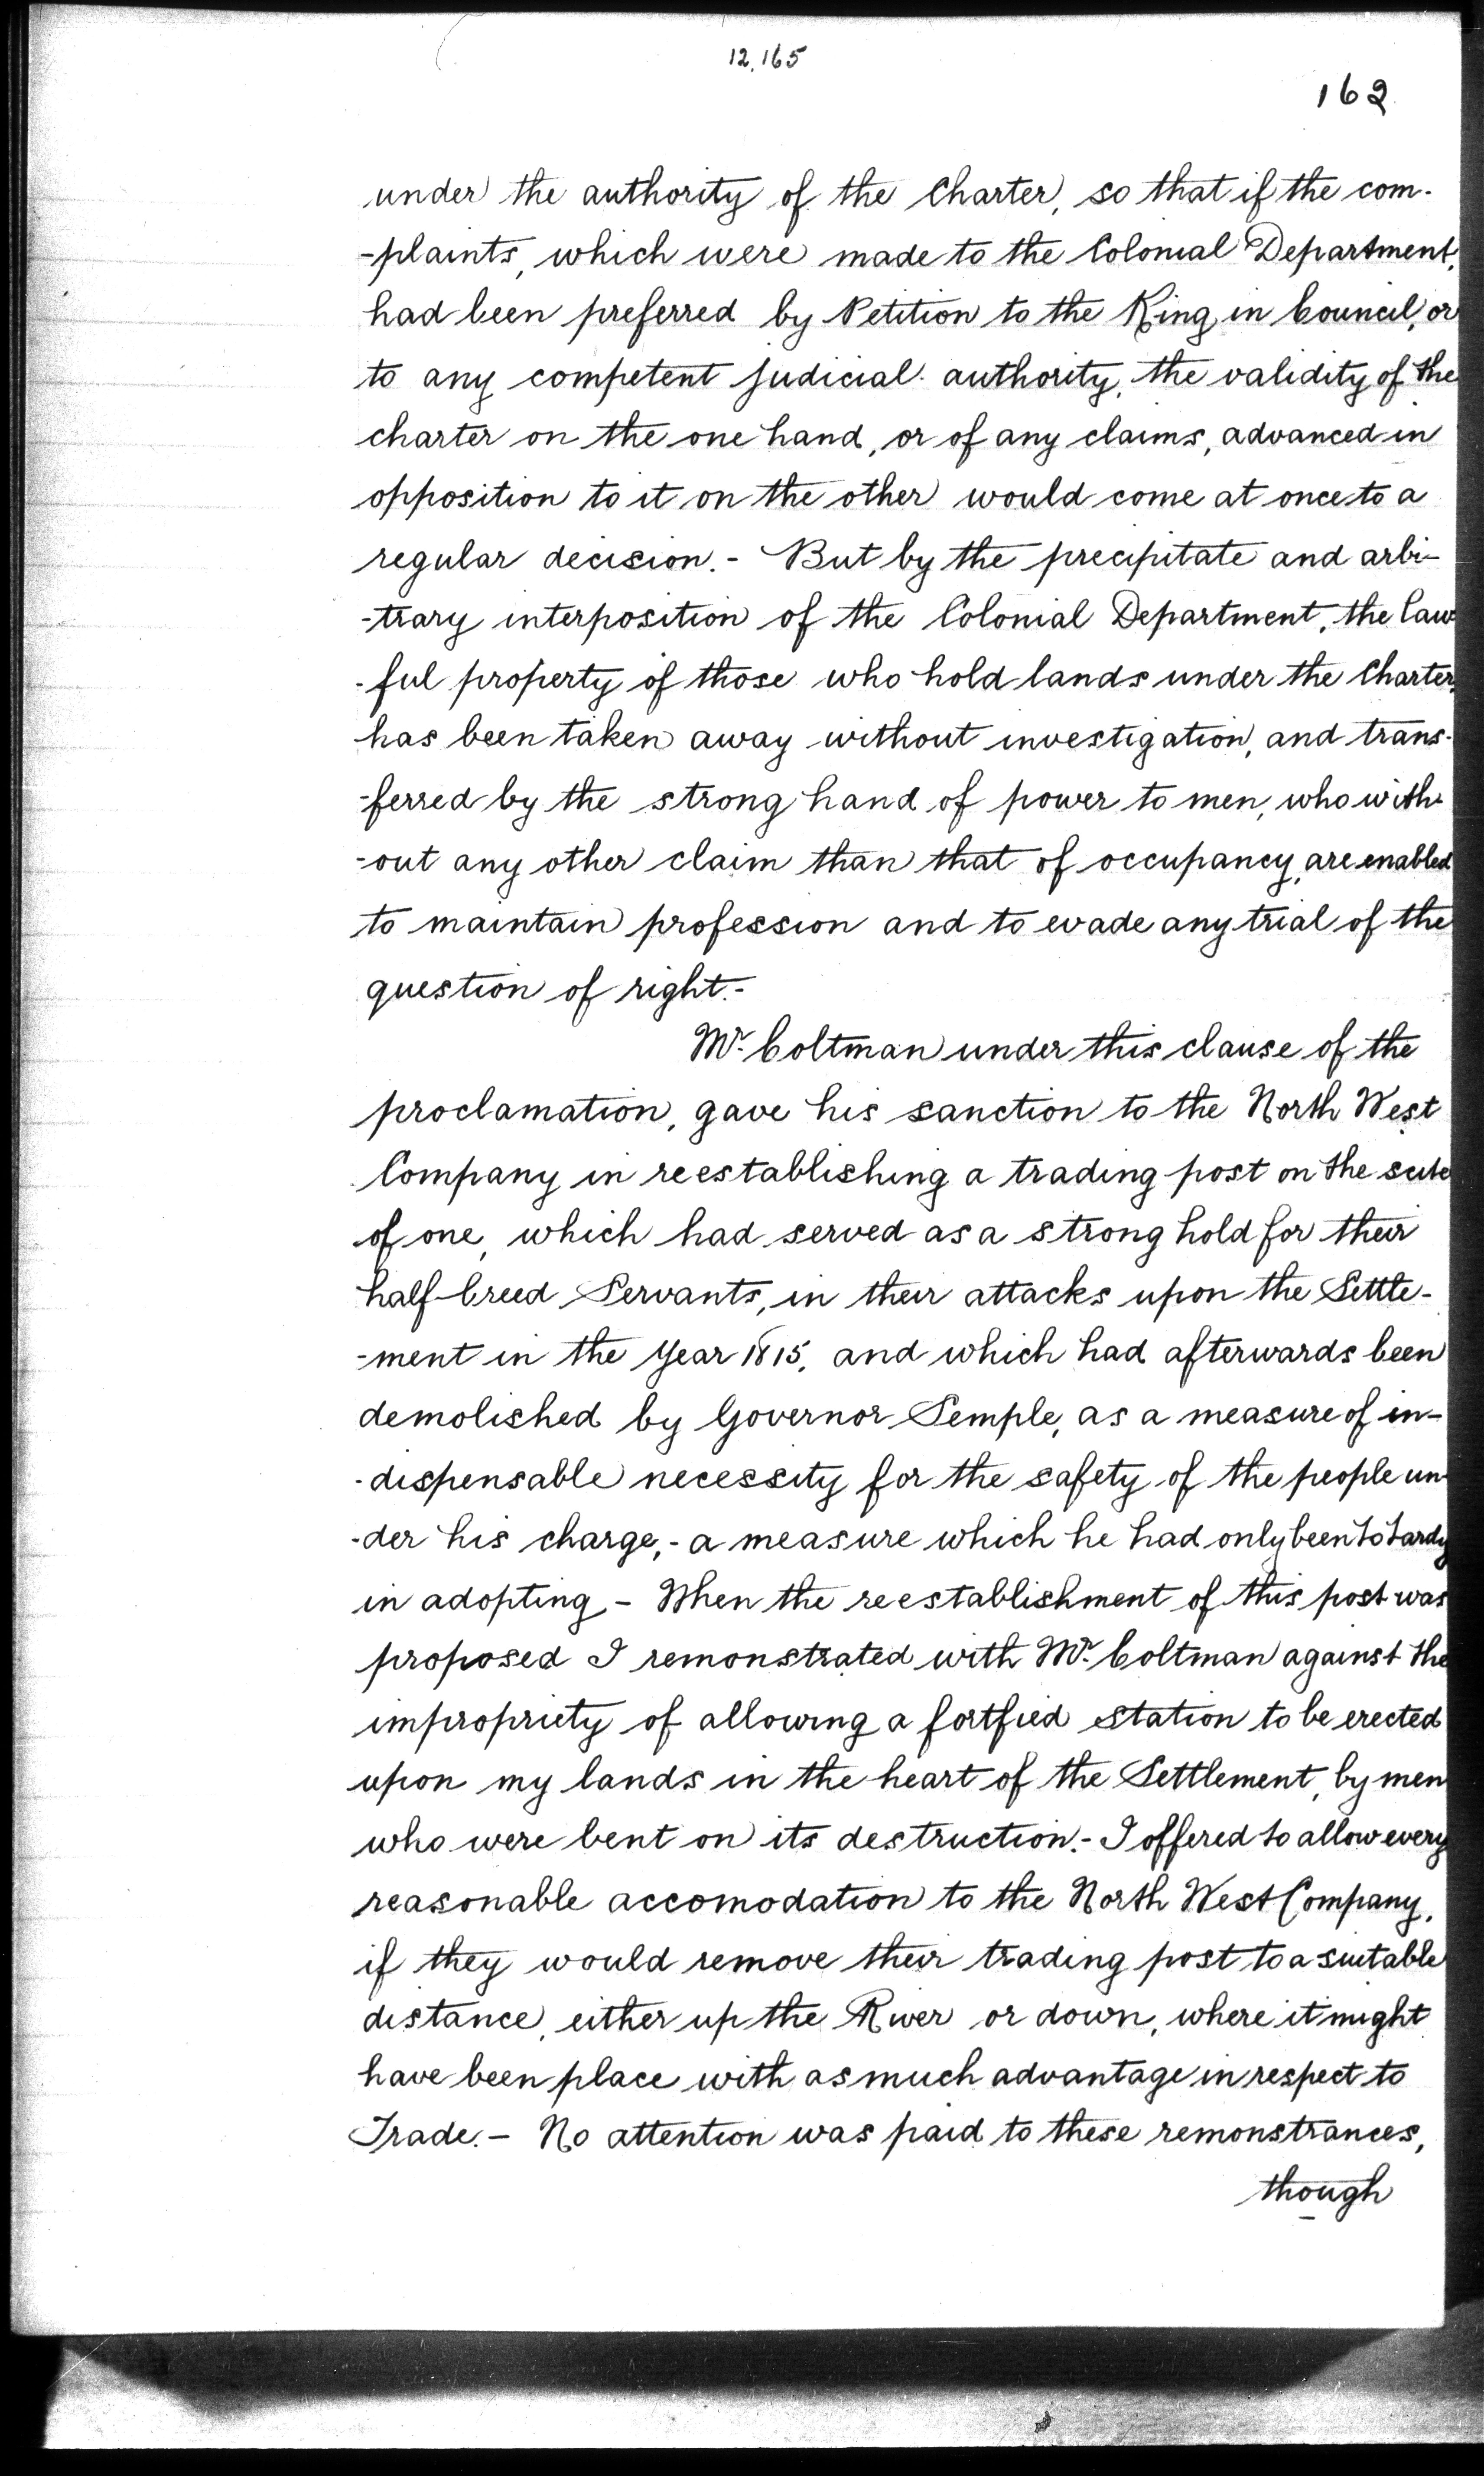 12,165
162
under the authority of the Charter, so that if the com-
-plaints, which were made to the Colonial Department,
had been preferred by Petition to the King in Council, or
to any competent Judicial authority, the validity of the
charter on the one hand, or of any claims, advanced in
opposition to it on the other would come at once to a
regular decision.- But by the precipitate and arbi-
-trary interposition of the Colonial Department, the law
-ful property of those who hold lands under the Charter,
has been taken away without investigation, and trans-
-ferred by the strong hand of power to men, who with-
-out any other claim than that of occupancy, are enabled
to maintain profession and to evade any trial of the
question of right.-
Mr. Coltman under this clause of the
proclamation, gave his sanction to the North West
Company in reestablishing a trading post on the scite
of one, which had served as a strong hold for their
half-breed Servants, in their attacks upon the Settle-
-ment in the Year 1815, and which had afterwards been
demolished by Governor Semple, as a measure of in-
-dispensable necessity for the safety of the people un-
-der his charge,- a measure which he had only been to tardy
in adopting - When the reestablishment of this post was
proposed I remonstrated with Mr. Coltman against the
impropriety of allowing a fortfied station to be erected
upon my lands in the heart of the Settlement, by men
who were bent on its destruction.- I offered to allow every
reasonable accomodation to the North West Company,
if they would remove their trading post to a suitable
distance, either up the River or down, where it might
have been place with as much advantage in respect to
Trade.- No attention was paid to these remonstrances,
though